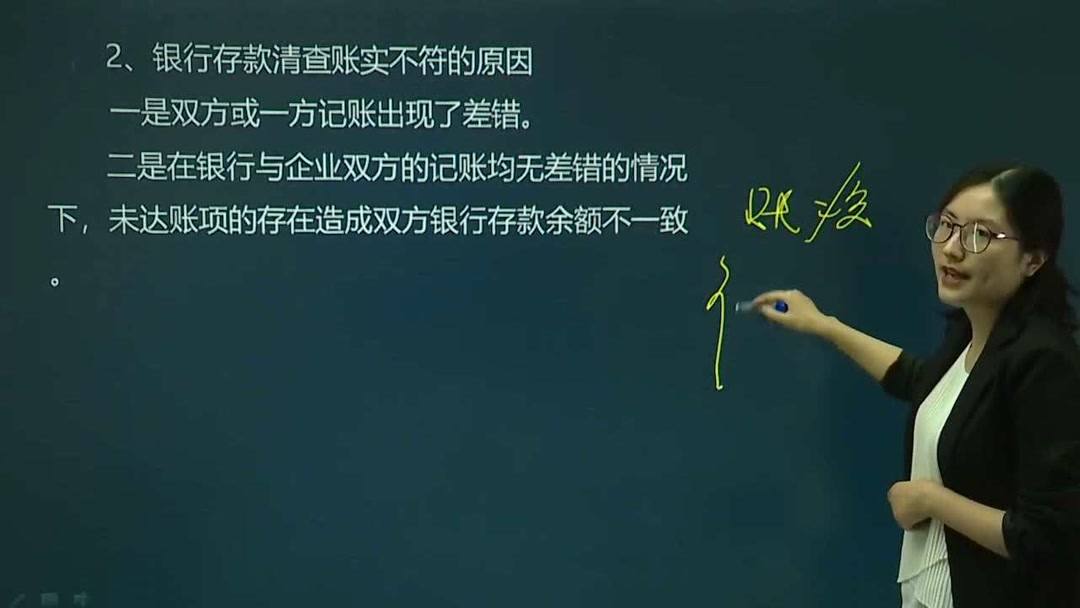 2、银行存款清查账实不符的原因
一是双方或一方记账出现了差错。
二是在银行与企业双方的记账均无差错的情况
下，未达账项的存在造成双方银行存款余额不一致
。